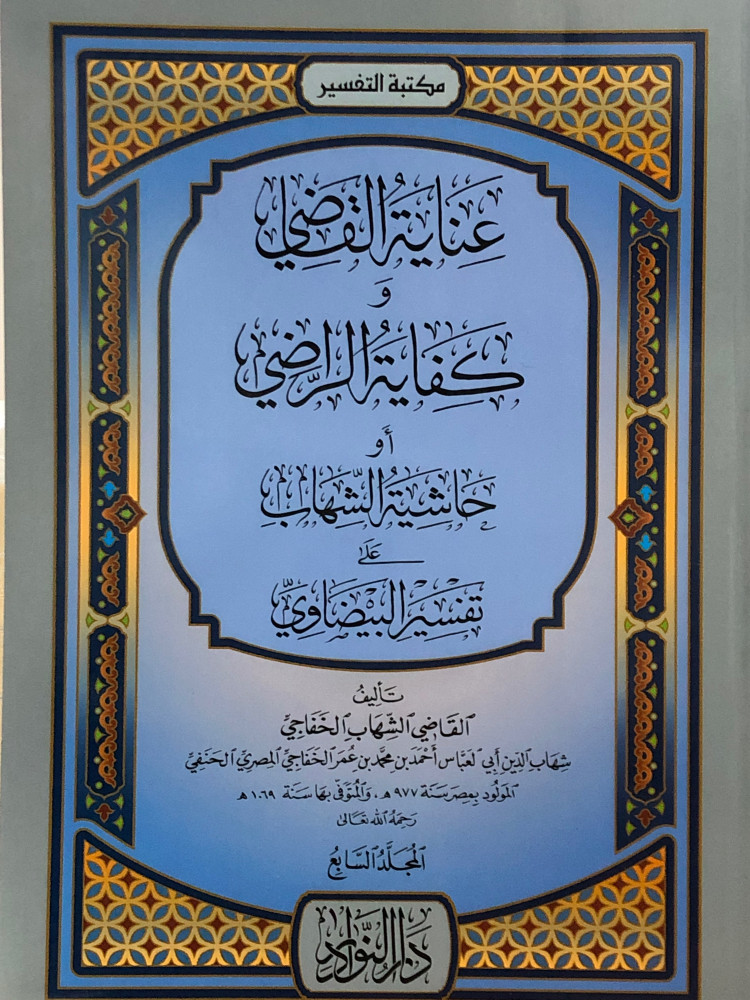 مكتبة التفسير
عِنَايَةُ القَاضِي
و
كِفَايَةُ الرَّاضِي
أَو
حَاشِيَةُ الشِّهَابِ
عَلَى
تَفْسِيرِ البَيْضَاوِيِّ
تَأليفُ
القَاضِي الشِّهَابِ الخَفَاجِيِّ
شِهَابِ الدِّينِ أَبِي العَبَّاسِ أَحْمَدَ بنِ مُحَمَّدِ بنِ عُمَرَ الخَفَاجِيِّ المِصْرِيِّ الحَنَفِيِّ
المَولُودِ بِمِصْرَ سَنَة ٩٧٧ هـ، وَالمُتَوَفَّى بِهَا سَنَة ١٠٦٩ هـ
رَحِمَهُ اللهُ تَعَالَى
المُجَلَّدُ السَّابِعُ
دَارُ النَّوَادِرِ